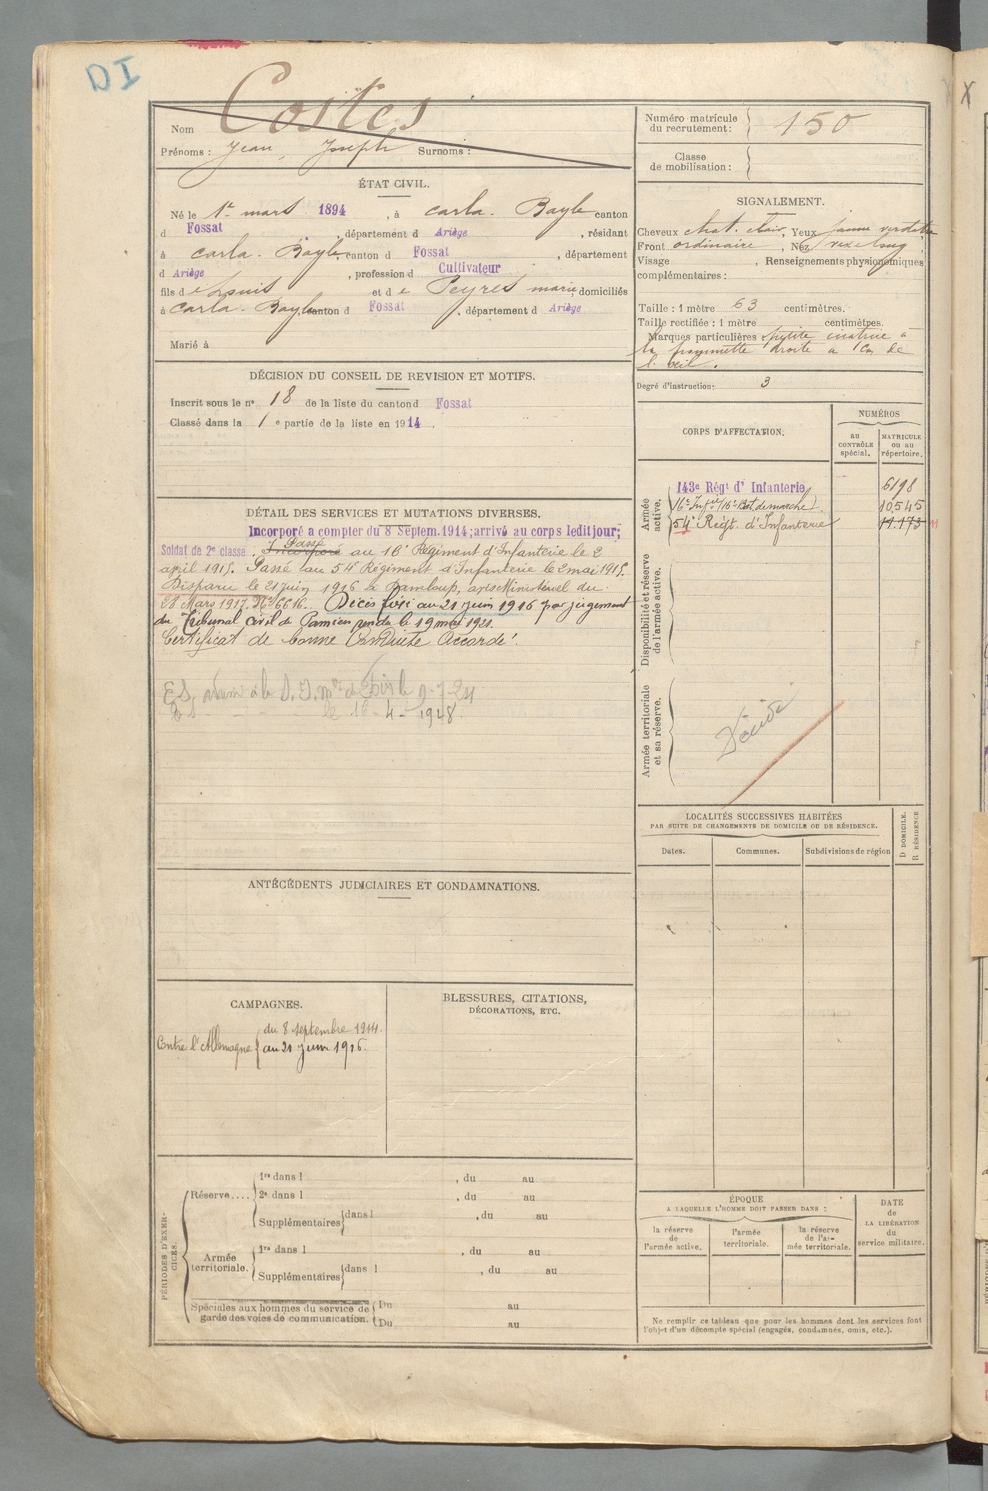 DI
Nom Costes
Prénoms : Jean, Joseph Surnoms :
ÉTAT CIVIL.
Né le 1er mars 1894, à Carla-Bayle canton
d Fossat, département d Ariège, résidant
à Carla-Bayle canton d Fossat, département
d Ariège, profession d Cultivateur
fils de Louis et de Peyres marie, domiciliés
à Carla-Bayle canton d Fossat, département d Ariège
Marié à
DÉCISION DU CONSEIL DE REVISION ET MOTIFS.
Inscrit sous le nº 18 de la liste du canton d Fossat
Classé dans la 1e partie de la liste en 1914.
DÉTAIL DES SERVICES ET MUTATIONS DIVERSES.
Incorporé a compter du 8 Septem. 1914; arrivé au corps ledit jour;
Soldat de 2e classe. Incorporé Passé au 16e Régiment d'Infanterie le 2
april 1915. Passé au 54e Régiment d'Infanterie le 2 mai 1915.
Disparu le 21 juin 1916 à Damloup, avis Ministériel du
28 Mars 1917. Nº 6616. Décès fixé au 21 juin 1916 par jugement
du Tribunal Civil de Pamiers rendu le 19 mai 1921.
Certificat de bonne Conduite Accordé.
le 9-7-24
le 16-4-1948
ANTÉCÉDENTS JUDICIAIRES ET CONDAMNATIONS.
CAMPAGNES.
Contre l'Allemagne
du 8 septembre 1914.
au 21 juin 1916.
BLESSURES, CITATIONS,
DÉCORATIONS, ETC.
PÉRIODES D'EXERCICES.
Réserve....
1re dans l , du au
2e dans l , du au
Supplémentaires dans l , du au
Armée territoriale.
1re dans l , du au
Supplémentaires dans l , du au
Spéciales aux hommes du service de
garde des voies de communication.
Du au
Du au
Numéro matricule
du recrutement : 150
Classe
de mobilisation :
SIGNALEMENT.
Cheveux chat. clair, Yeux jaune verdâtre
Front ordinaire, Nez rex. long
Visage , Renseignements physionomiques
complémentaires :
Taille : 1 mètre 63 centimètres.
Taille rectifiée : 1 mètre centimètres.
Marques particulières petite cicatrice à
la pommette droite à 1 cm de
l'œil.
Degré d'instruction: 3
CORPS D'AFFECTATION.
NUMÉROS
AU CONTRÔLE spécial.
MATRICULE ou au répertoire.
Armée active.
143e Régt d'Infanterie 6198
16e Infie (16e Bat de marche) 10545
54e Régt. d'Infanterie 11173
Disponibilité et réserve
de l'armée active.
Armée territoriale
et sa réserve.
Décédé
LOCALITÉS SUCCESSIVES HABITÉES
PAR SUITE DE CHANGEMENTS DE DOMICILE OU DE RÉSIDENCE.
D DOMICILE.
R RÉSIDENCE
Dates. Communes. Subdivisions de région
ÉPOQUE
A LAQUELLE L'HOMME DOIT PASSER DANS :
la réserve de l'armée active.
l'armée territoriale.
la réserve de l'armée territoriale.
DATE
de
LA LIBÉRATION
du
service militaire.
Ne remplir ce tableau que pour les hommes dont les services font
l'objet d'un décompte spécial (engagés, condamnés, omis, etc.).